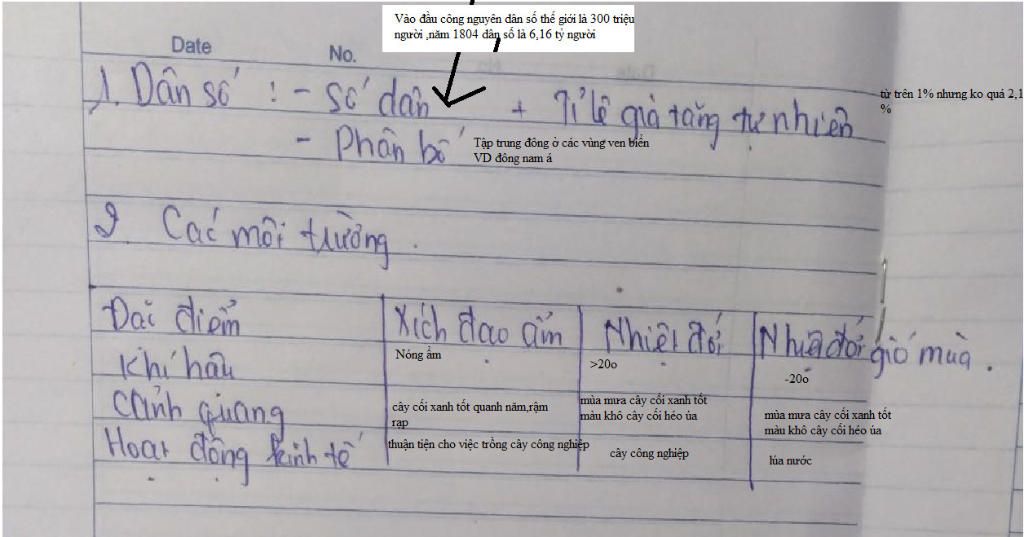 Vào đầu công nguyên dân số thế giới là 300 triệu
người ,năm 1804 dân số là 6,16 tỷ người
Date No.
1. Dân số : - Số dân + Tỉ lệ gia tăng tự nhiên
từ trên 1% nhưng ko quá 2,1
%
- Phân bố
Tập trung đông ở các vùng ven biển
VD đông nam á
2 Các môi trường.
Đặc điểm Xích đạo ẩm Nhiệt đới Nhiệt đới gió mùa.
Khí hậu Nóng ẩm >20o -20o
Cảnh quang cây cối xanh tốt quanh năm,rậm
rạp
mùa mưa cây cối xanh tốt
màu khô cây cối héo úa
mùa mưa cây cối xanh tốt
màu khô cây cối héo úa
Hoạt động kinh tế thuận tiện cho việc trồng cây công nghiệp cây công nghiệp lúa nước